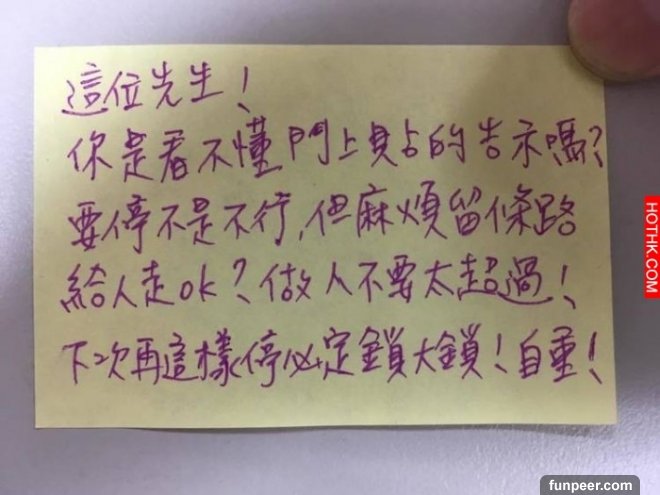 這位先生!
你是看不懂門上貼的告示嗎?
要停不是不行,但麻煩留條路
給人走ok?做人不要太超過!
下次再這樣停必定鎖大鎖!自重!
HOTHK.COM
funpeer.com